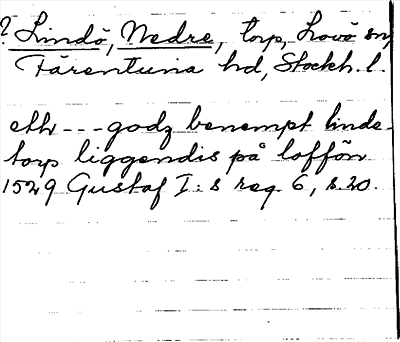 ? Lindö, Nedre, torp, Lovö sn,
Färentuna hd, Stockh. l.
eth --- godz benempt linde-
torp liggendis på loffön
1529 Gustaf I:s reg. 6, s. 20.